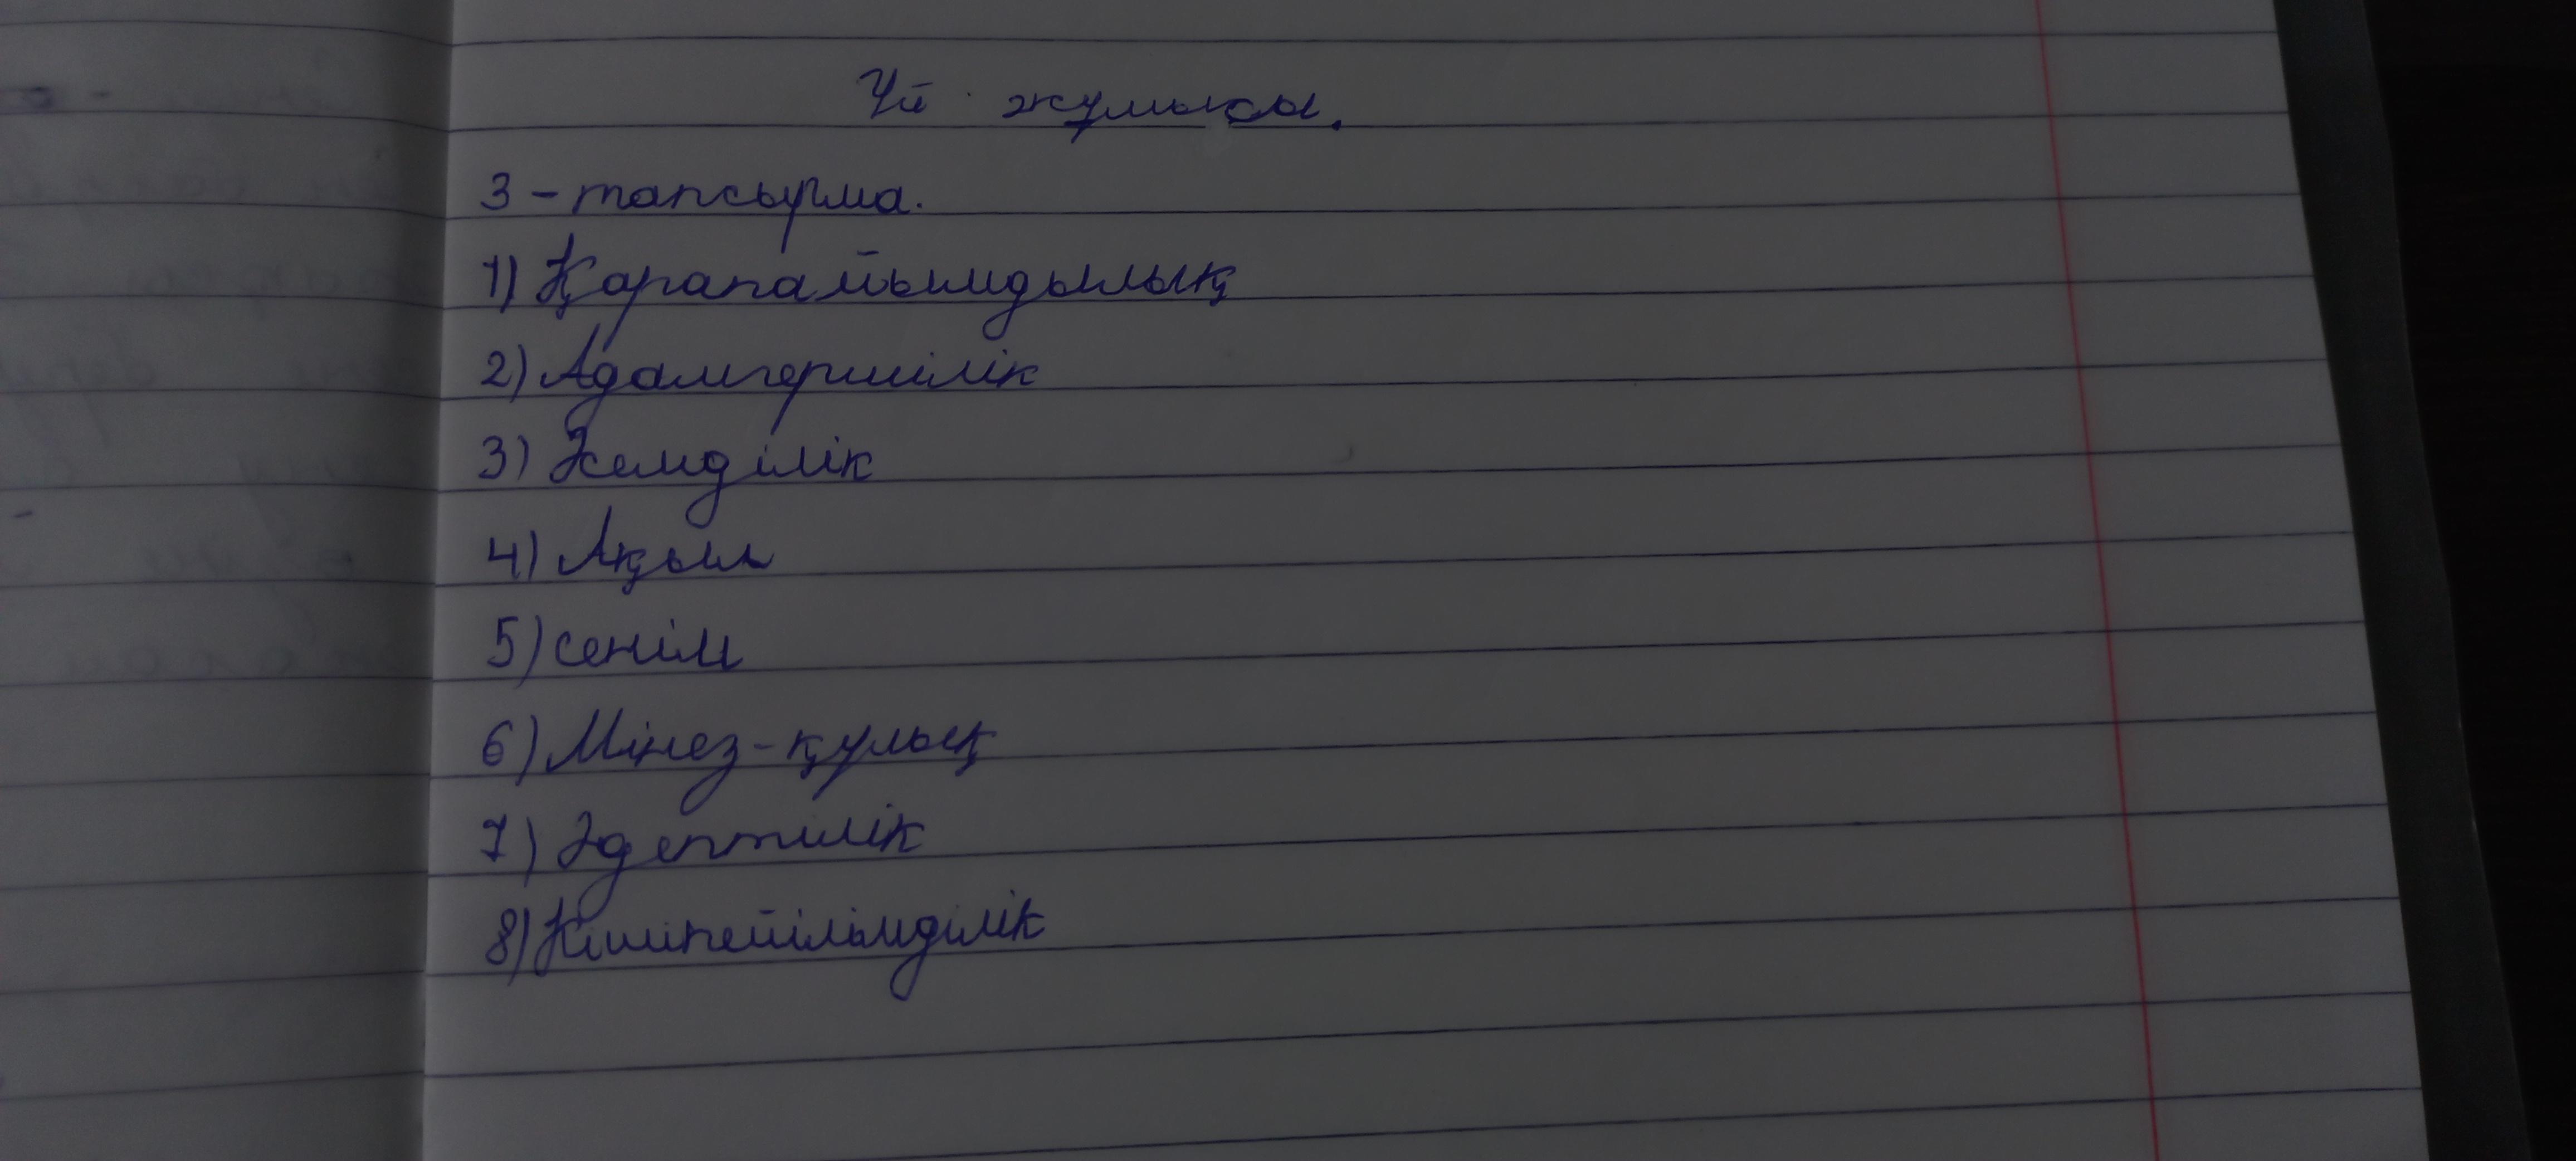 Үй жұмысы.
3 - тапсырма.
1) Қарапайымдылық
2) Адамгершілік
3) Кемділік
4) Ақыл
5) сенім
6) Мінез-құлық
7) Әдептілік
8) Кішіпейілімділік